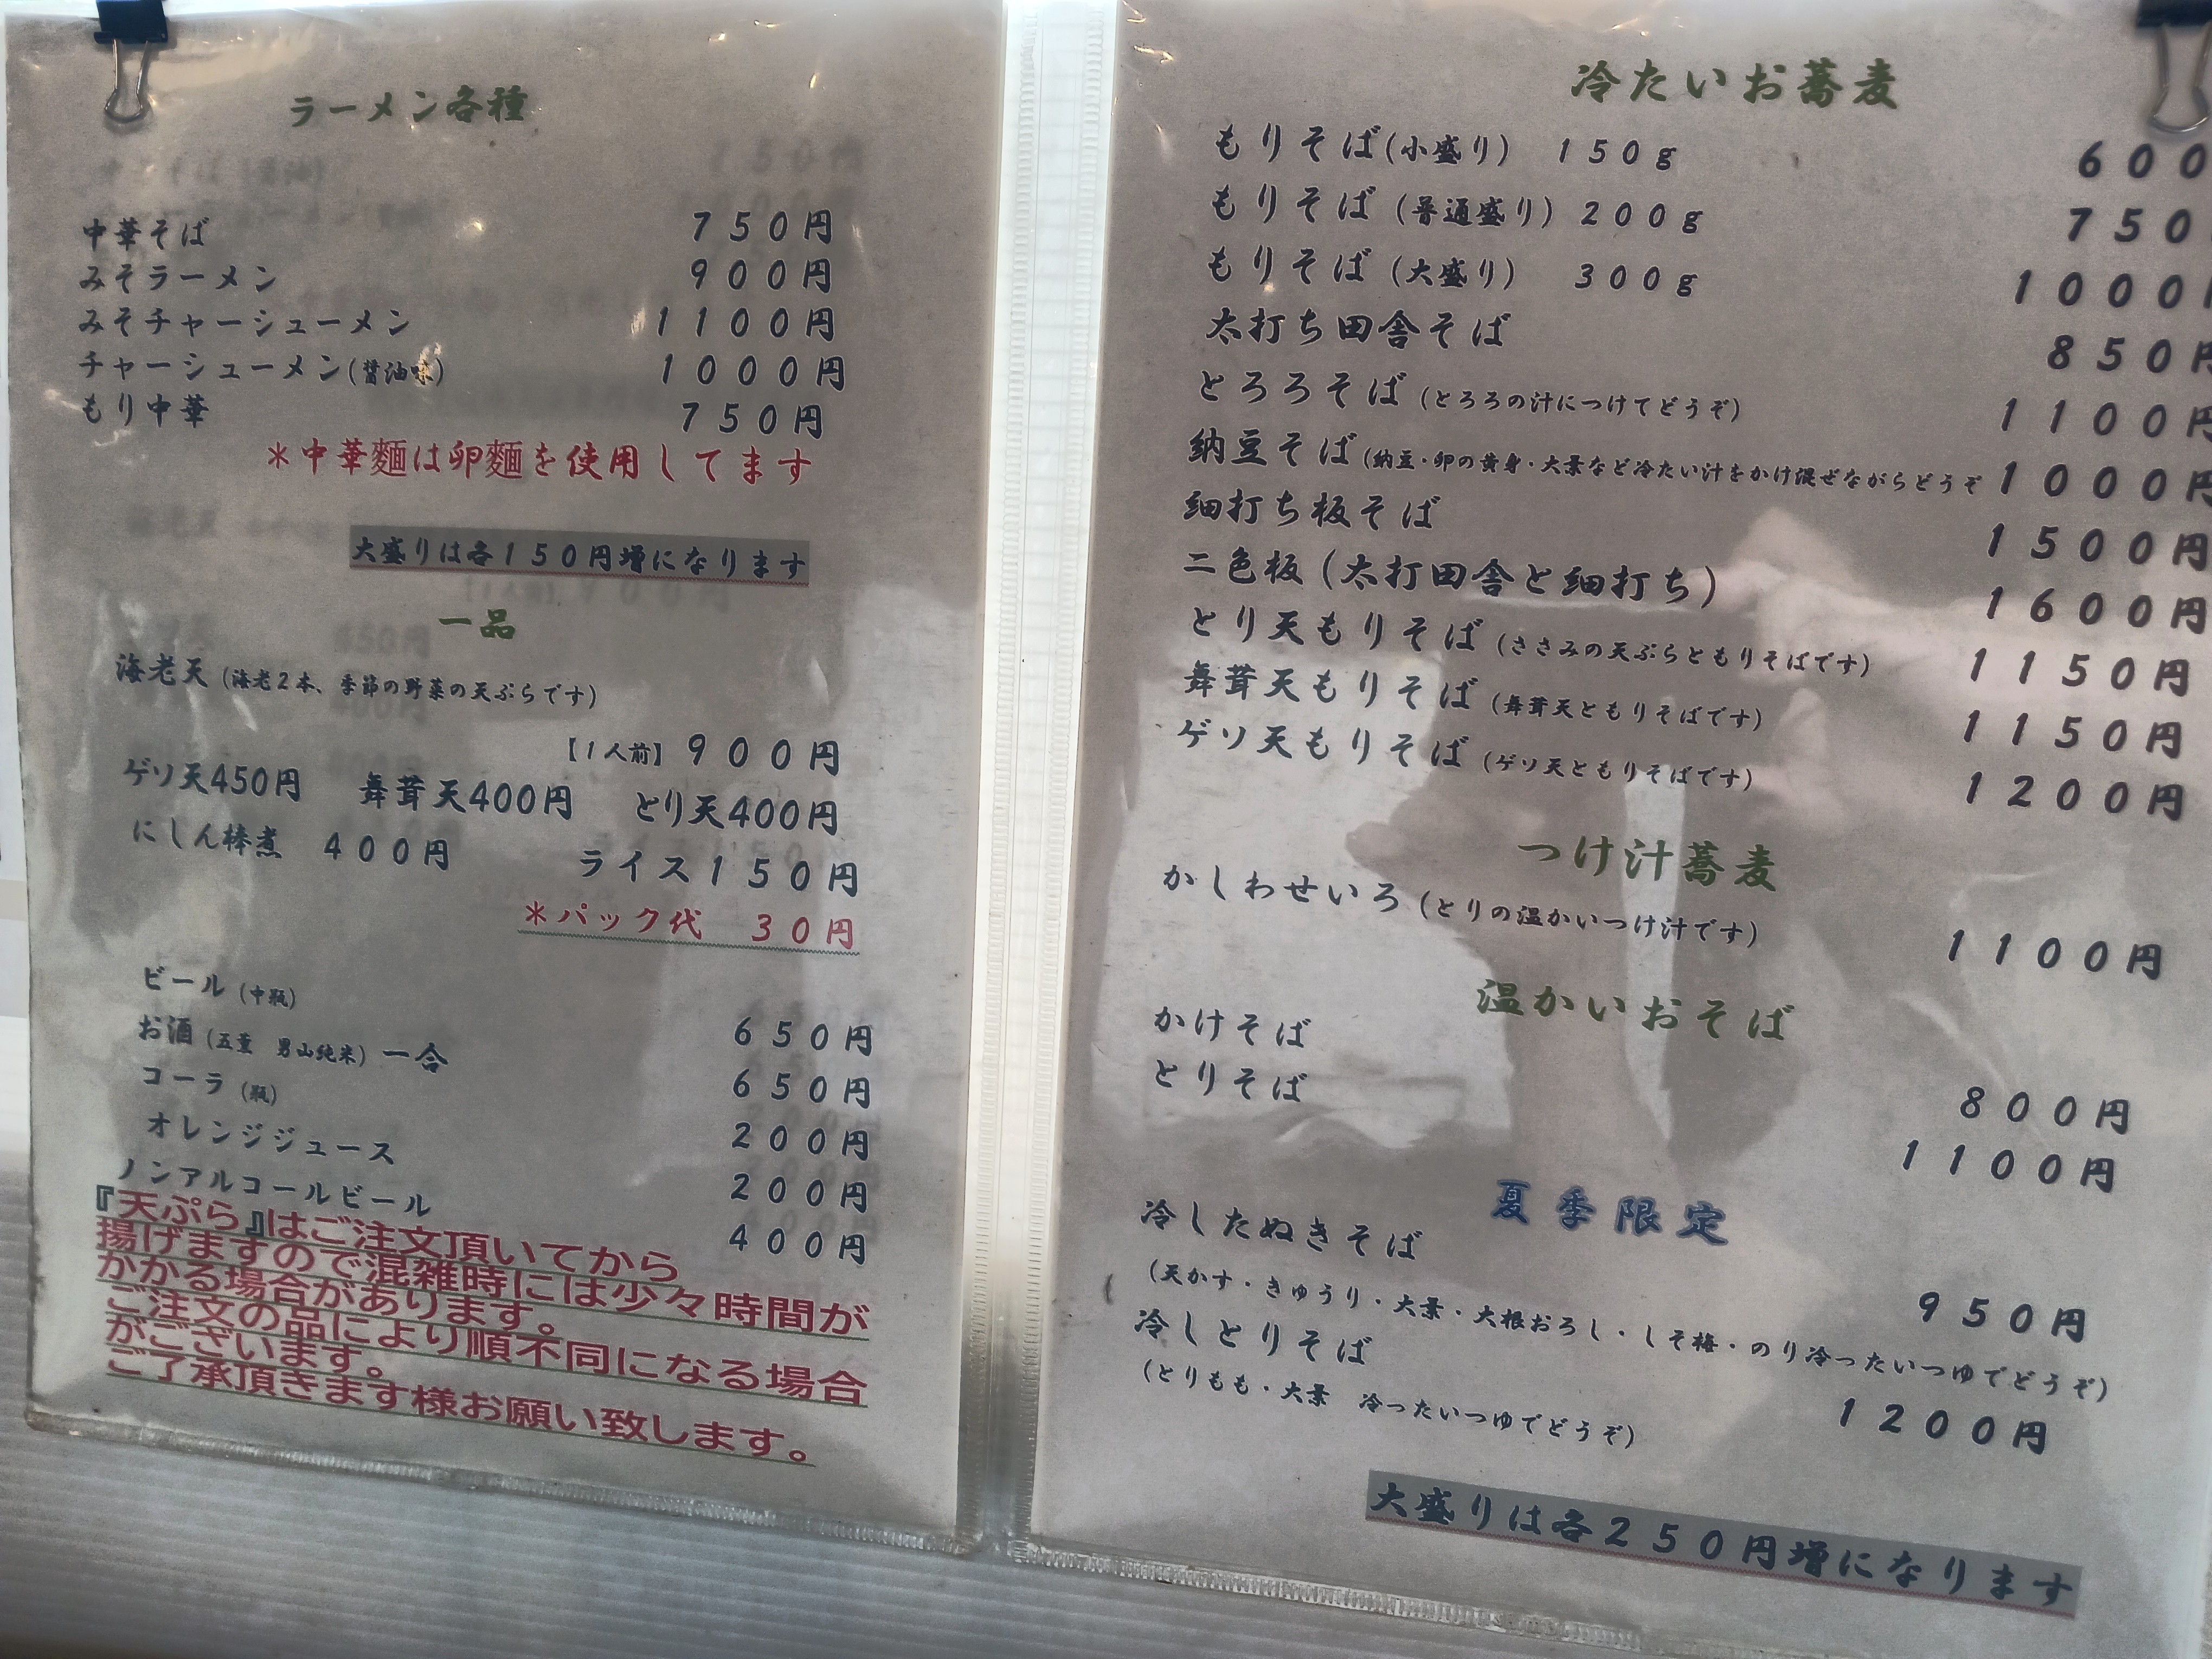 ラーメン各種
中華そば 750円
みそラーメン 900円
みそチャーシューメン 1100円
チャーシューメン(醤油味) 1000円
もり中華 750円
*中華麺は卵麺を使用してます
大盛りは各150円増になります
一品
海老天(海老2本、季節の野菜の天ぷらです)
【1人前】900円
ゲソ天450円 舞茸天400円 とり天400円
にしん棒煮 400円 ライス150円
*パック代 30円
ビール(中瓶) 650円
お酒(五薫 男山純米)一合 650円
コーラ(瓶) 200円
オレンジジュース 200円
ノンアルコールビール 400円
『天ぷら』はご注文頂いてから
揚げますので混雑時には少々時間が
かかる場合があります。
ご注文の品により順不同になる場合
がございます。
ご了承頂きます様お願い致します。
冷たいお蕎麦
もりそば(小盛り) 150g 600
もりそば(普通盛り) 200g 750
もりそば(大盛り) 300g 1000円
太打ち田舎そば 850円
とろろそば(とろろの汁につけてどうぞ) 1100円
納豆そば(納豆・卵の黄身・大葉など冷たい汁をかけ混ぜながらどうぞ 1000円
細打ち板そば 1500円
二色板(太打田舎と細打ち) 1600円
とり天もりそば(ささみの天ぷらともりそばです) 1150円
舞茸天もりそば(舞茸天ともりそばです) 1150円
ゲソ天もりそば(ゲソ天ともりそばです) 1200円
つけ汁蕎麦
かしわせいろ(とりの温かいつけ汁です) 1100円
温かいおそば
かけそば 800円
とりそば 1100円
夏季限定
冷したぬきそば 950円
(天かす・きゅうり・大葉・大根おろし・しそ梅・のり冷ったいつゆでどうぞ)
冷しとりそば 1200円
(とりもも・大葉 冷ったいつゆでどうぞ)
大盛りは各250円増になります